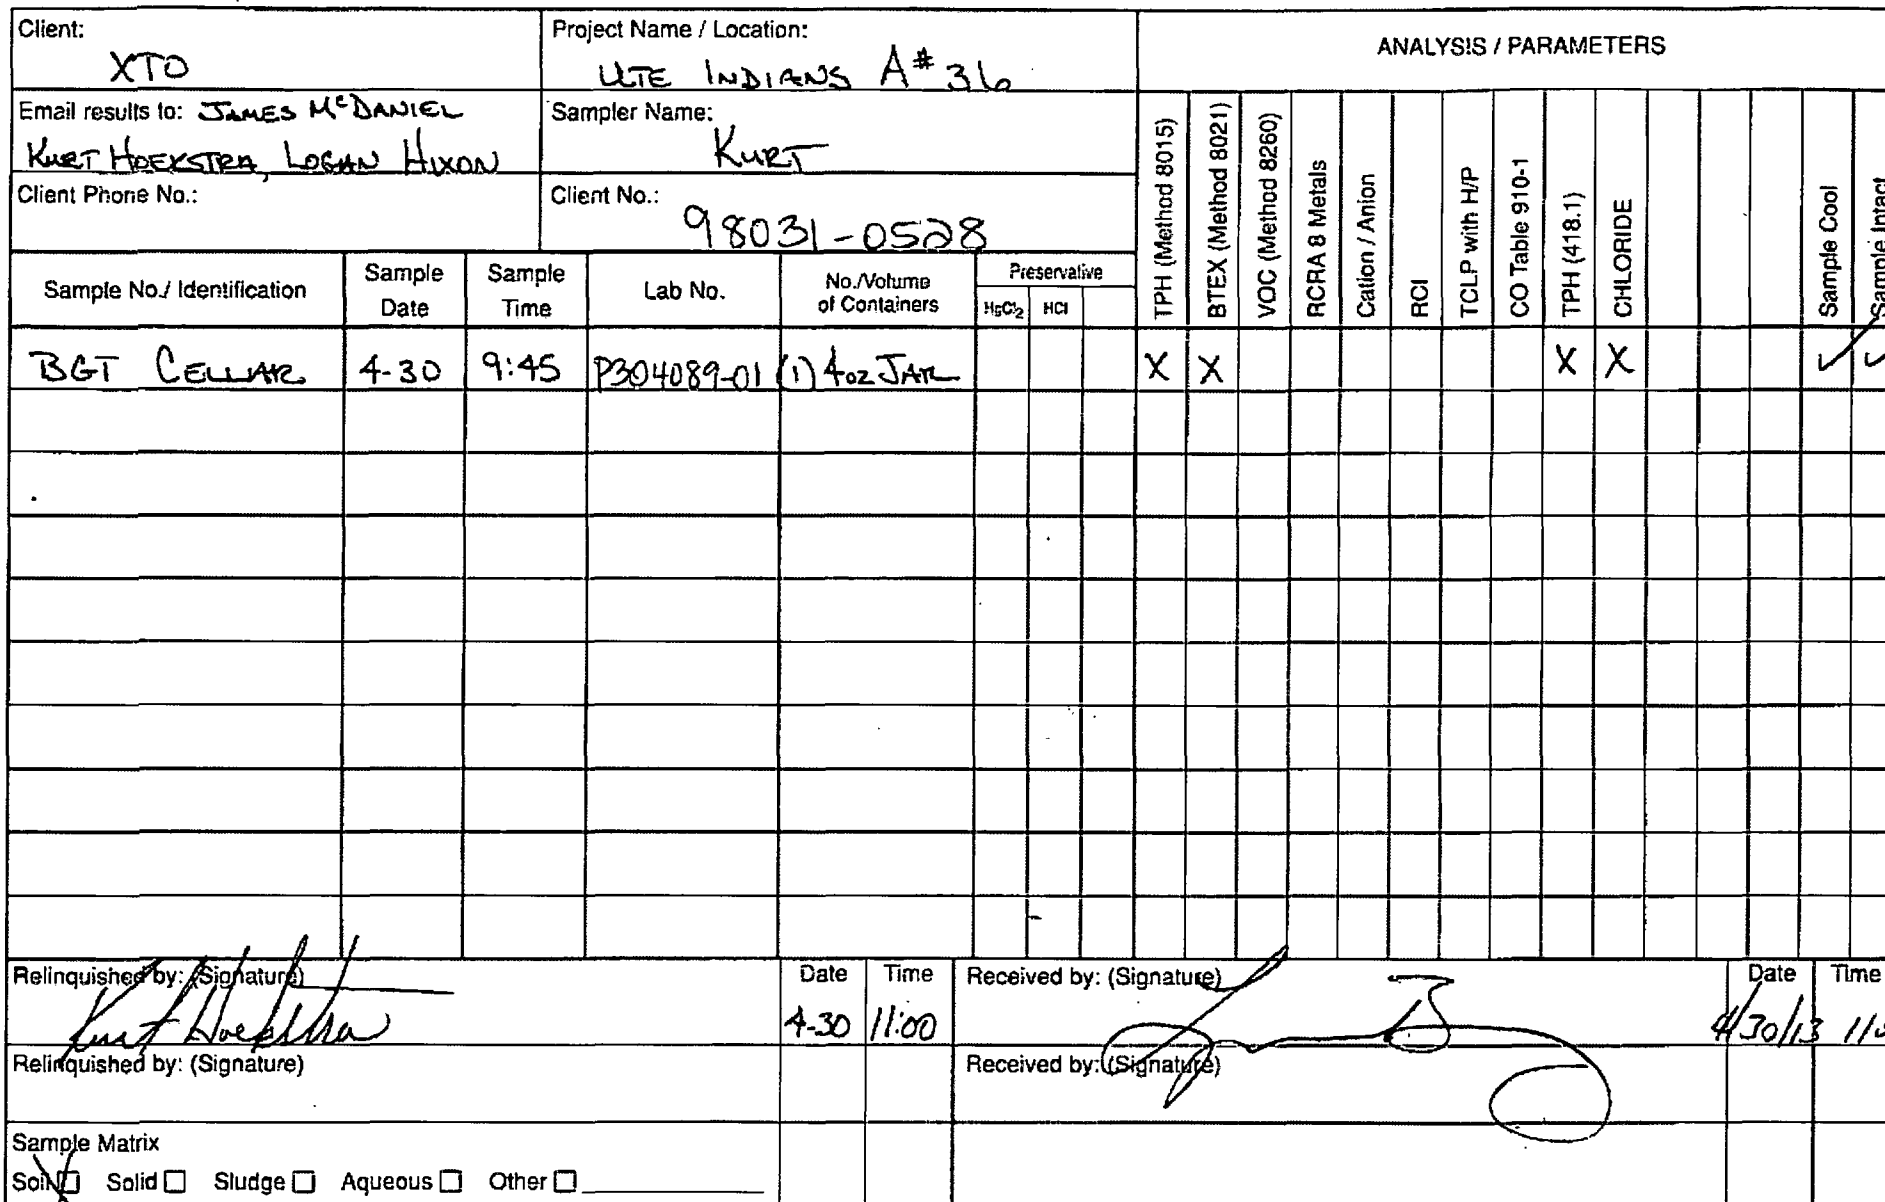 Client:
XTO
Project Name / Location:
UTE INDIANS A# 36
ANALYSIS / PARAMETERS
Email results to: JAMES McDANIEL
KURT HOEKSTRA, LOGAN HIXON
Sampler Name:
KURT
Client Phone No.:
Client No.:
98031-0528
Sample No./ Identification
Sample Date
Sample Time
Lab No.
No./Volume of Containers
Preservative
HgCl2
HCl
TPH (Method 8015)
BTEX (Method 8021)
VOC (Method 8260)
RCRA 8 Metals
Cation / Anion
RCI
TCLP with H/P
CO Table 910-1
TPH (418.1)
CHLORIDE
Sample Cool
Sample Intact
BGT CELLAR 4-30 9:45 P304089-01 (1) 4oz JAR X X X X ✓ ✓
Relinquished by: (Signature)
Kurt Hoekstra
Date
4-30
Time
11:00
Received by: (Signature)
Date
4/30/13
Time
Relinquished by: (Signature)
Received by: (Signature)
Sample Matrix
Soil ☐ Solid ☐ Sludge ☐ Aqueous ☐ Other ☐